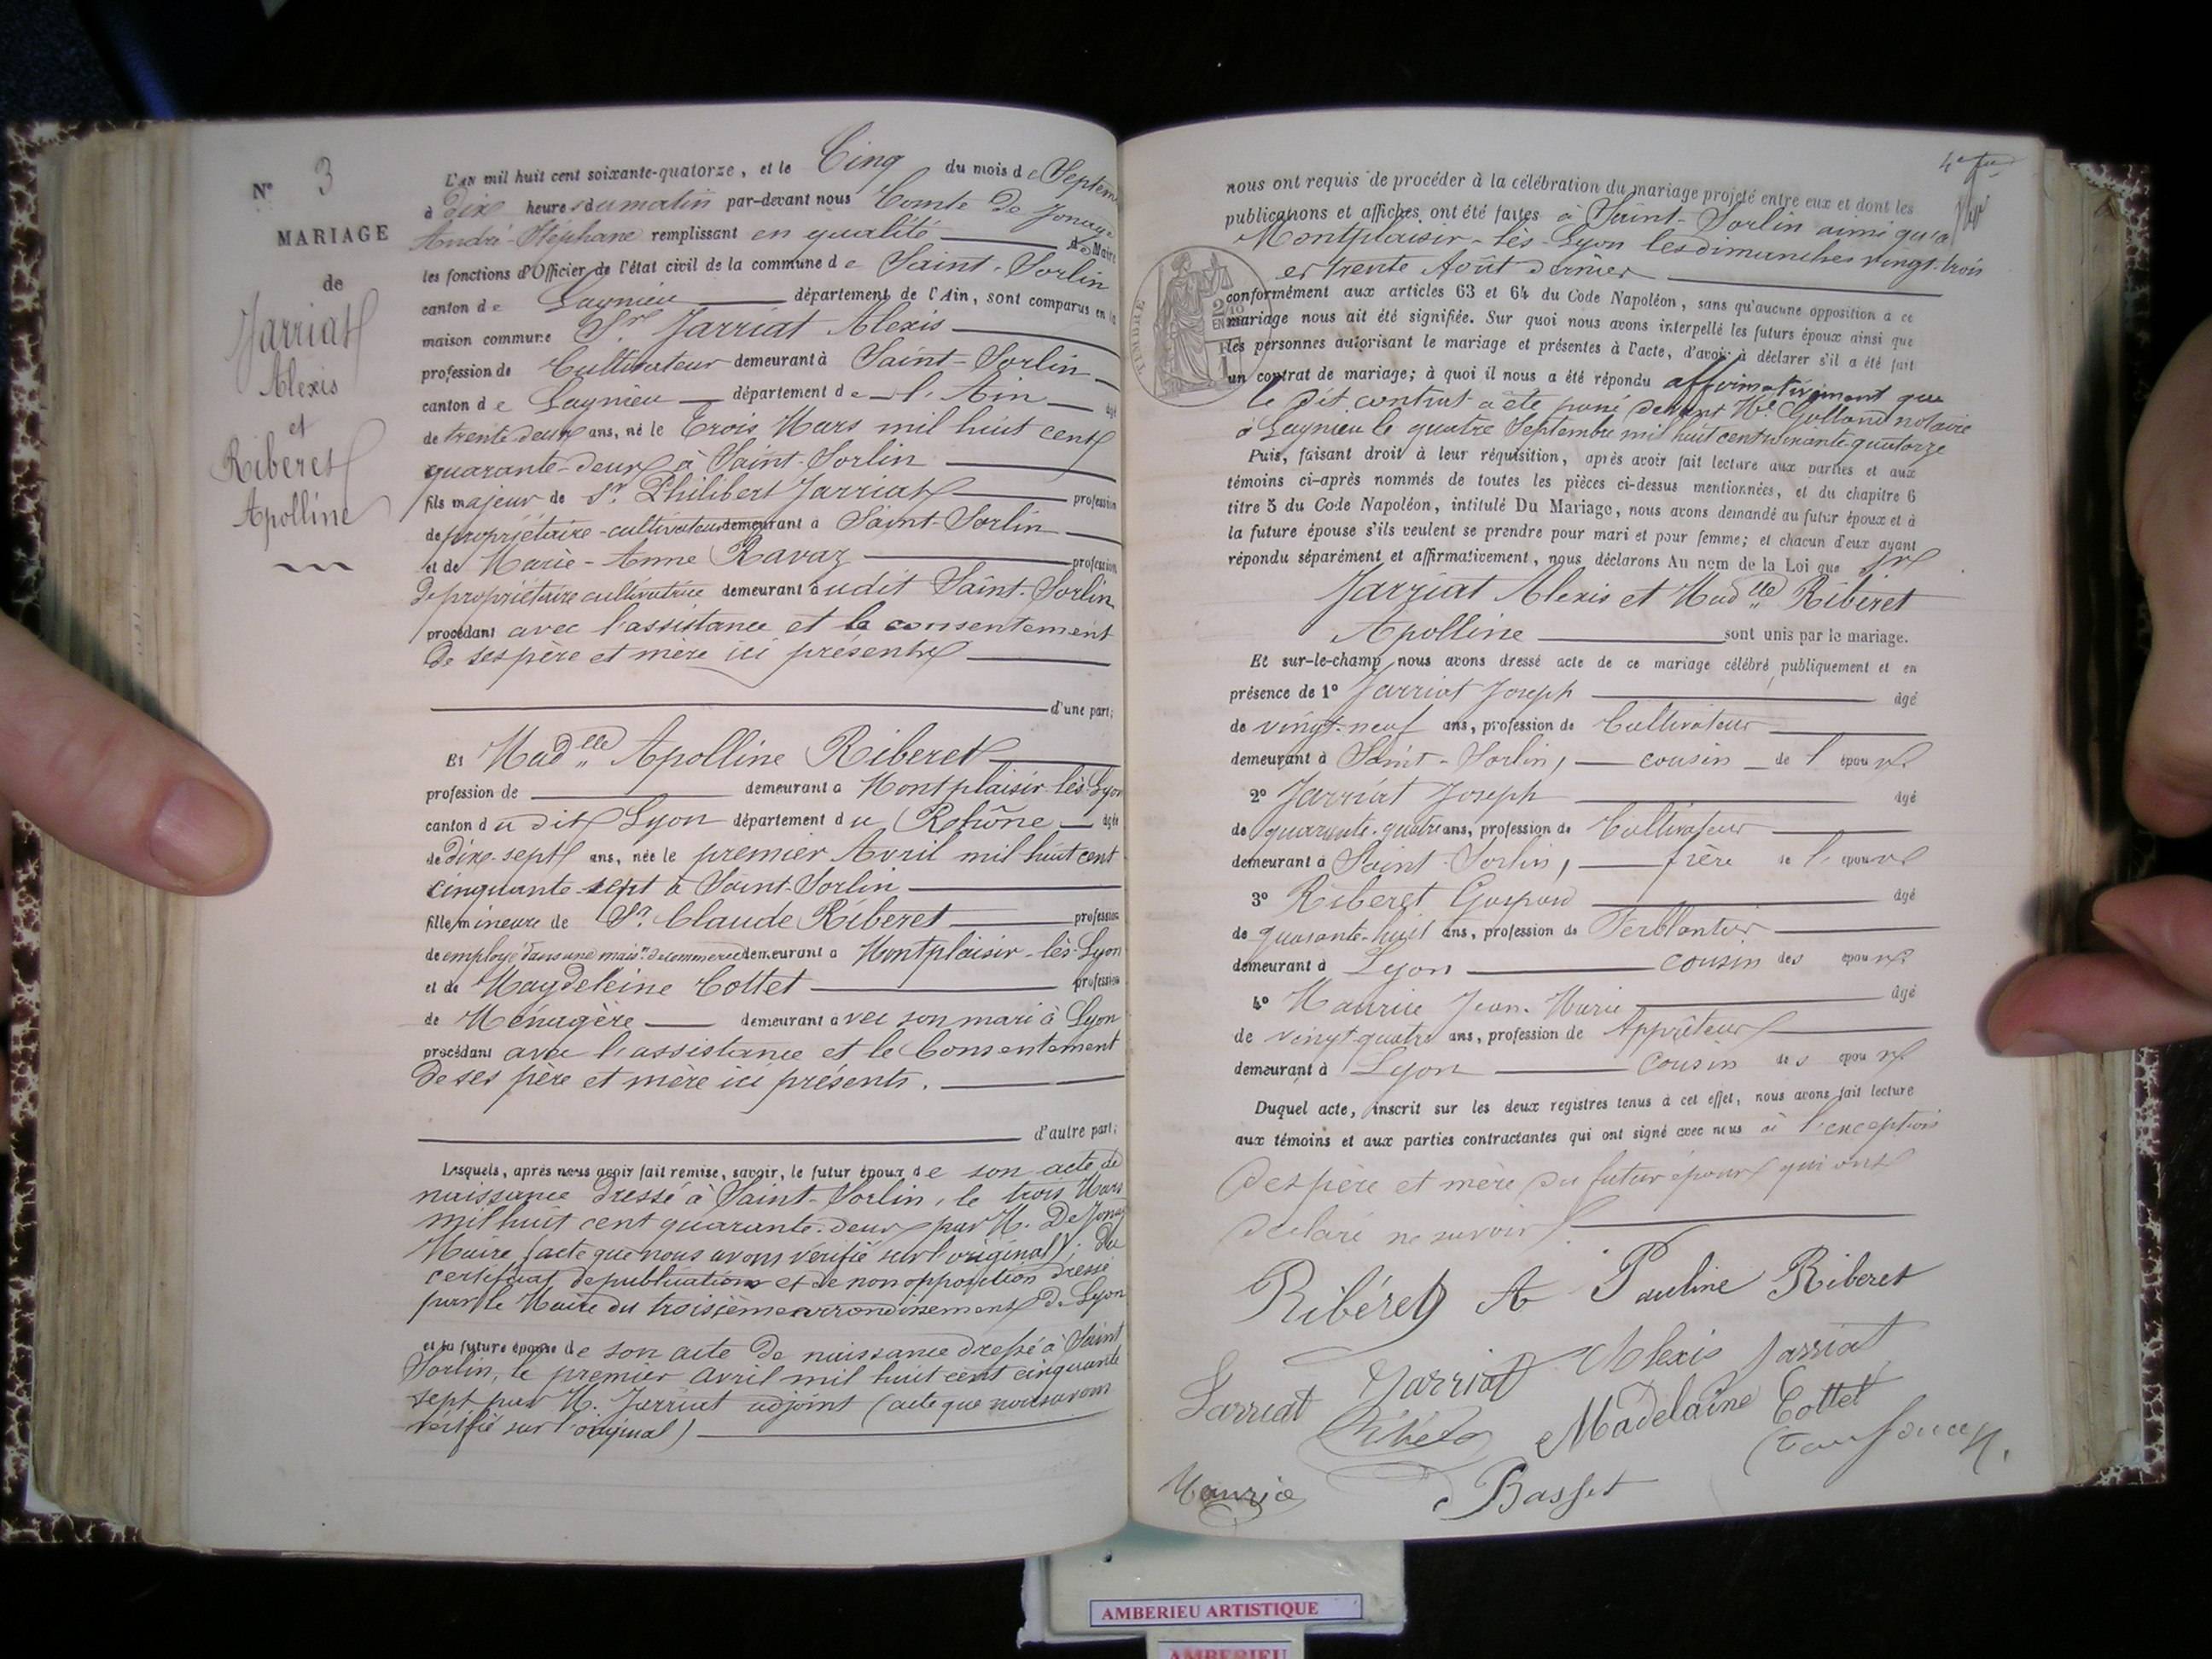 N° 3
MARIAGE
de
Jarriat
Alexis
et
Riberet
Apolline
L'AN mil huit cent soixante-quatorze, et le Cinq du mois de Septem
à dix heures du matin par-devant nous Comte De Jonage
André-Stéphane remplissant en qualité de Maire
les fonctions d'Officier de l'état civil de la commune de Saint-Sorlin
canton de Lagnieu département de l'Ain, sont comparus en la
maison commune Sr Jarriat Alexis
profession de Cultivateur demeurant à Saint-Sorlin
canton de Lagnieu département de l'Ain âgé
de trente deux ans, né le trois Mars mil huit cent
quarante-deux à Saint-Sorlin
fils majeur de Sr Philibert Jarriat profession
de propriétaire-cultivateur demeurant à Saint-Sorlin
et de Marie-Anne Ravaz profession
de propriétaire cultivatrice demeurant audit Saint-Sorlin
procédant avec l'assistance et le consentement
de ses père et mère ici présents
d'une part;
Et Madelle Apolline Riberet
profession de demeurant à Montplaisir-lès-Lyon
canton dudit Lyon département du Rhône âgée
de dix-sept ans, née le premier Avril mil huit cent
cinquante-sept à Saint-Sorlin
fille mineure de Sr Claude Riberet profession
de employé dans une maison de commerce demeurant à Montplaisir-lès-Lyon
et de Magdeleine Cottet profession
de Ménagère demeurant avec son mari à Lyon
procédant avec l'assistance et le Consentement
de ses père et mère ici présents.
d'autre part;
Lesquels, après nous avoir fait remise, savoir, le futur époux de son acte de
naissance dressé à Saint-Sorlin, le trois Mars
mil huit cent quarante-deux par M. De Jonage
Maire (acte que nous avons vérifié sur l'original); du
certificat de publications et de non opposition dressé
par le Maire du troisième arrondissement de Lyon
et la future épouse de son acte de naissance dressé à Saint
Sorlin, le premier Avril mil huit cent cinquante
sept par M. Jarriat adjoint (acte que nous avons
vérifié sur l'original)
nous ont requis de procéder à la célébration du mariage projeté entre eux et dont les
publications et affiches ont été faites à Saint-Sorlin ainsi qu'à
Montplaisir-lès-Lyon les dimanches vingt-trois
et trente Août dernier
conformément aux articles 63 et 64 du Code Napoléon, sans qu'aucune opposition à ce
mariage nous ait été signifiée. Sur quoi nous avons interpellé les futurs époux ainsi que
les personnes autorisant le mariage et présentes à l'acte, d'avoir à déclarer s'il a été fait
un contrat de mariage; à quoi il nous a été répondu affirmativement que
le dit contrat a été passé devant Me Golland notaire
à Lagnieu le quatre Septembre mil huit cent soixante quatorze
Puis, faisant droit à leur réquisition, après avoir fait lecture aux parties et aux
témoins ci-après nommés de toutes les pièces ci-dessus mentionnées, et du chapitre 6
titre 5 du Code Napoléon, intitulé Du Mariage, nous avons demandé au futur époux et à
la future épouse s'ils veulent se prendre pour mari et pour femme; et chacun d'eux ayant
répondu séparément et affirmativement, nous déclarons Au nom de la Loi que Sr
Jarriat Alexis et Madelle Riberet
Apolline sont unis par le mariage.
Et sur-le-champ nous avons dressé acte de ce mariage célébré publiquement et en
présence de 1° Jarriat Joseph âgé
de vingt-neuf ans, profession de Cultivateur
demeurant à Saint-Sorlin, cousin de l'époux
2° Jarriat Joseph âgé
de quarante-quatre ans, profession de Cultivateur
demeurant à Saint-Sorlin, frère de l'époux
3° Riberet Gaspard âgé
de quarante-huit ans, profession de Ferblantier
demeurant à Lyon cousin des époux
4° Maurice Jean-Marie âgé
de vingt-quatre ans, profession de Apprêteur
demeurant à Lyon Cousin des époux
Duquel acte, inscrit sur les deux registres tenus à cet effet, nous avons fait lecture
aux témoins et aux parties contractantes qui ont signé avec nous à l'exception
des père et mère du futur époux qui ont
déclaré ne savoir
Ribéret A Pauline Riberet
Jarriat Jarriat Alexis Jarriat
Madelaine Cottet
Maurice Basset
TIMBRE
AMBERIEU ARTISTIQUE
AMBERIEU